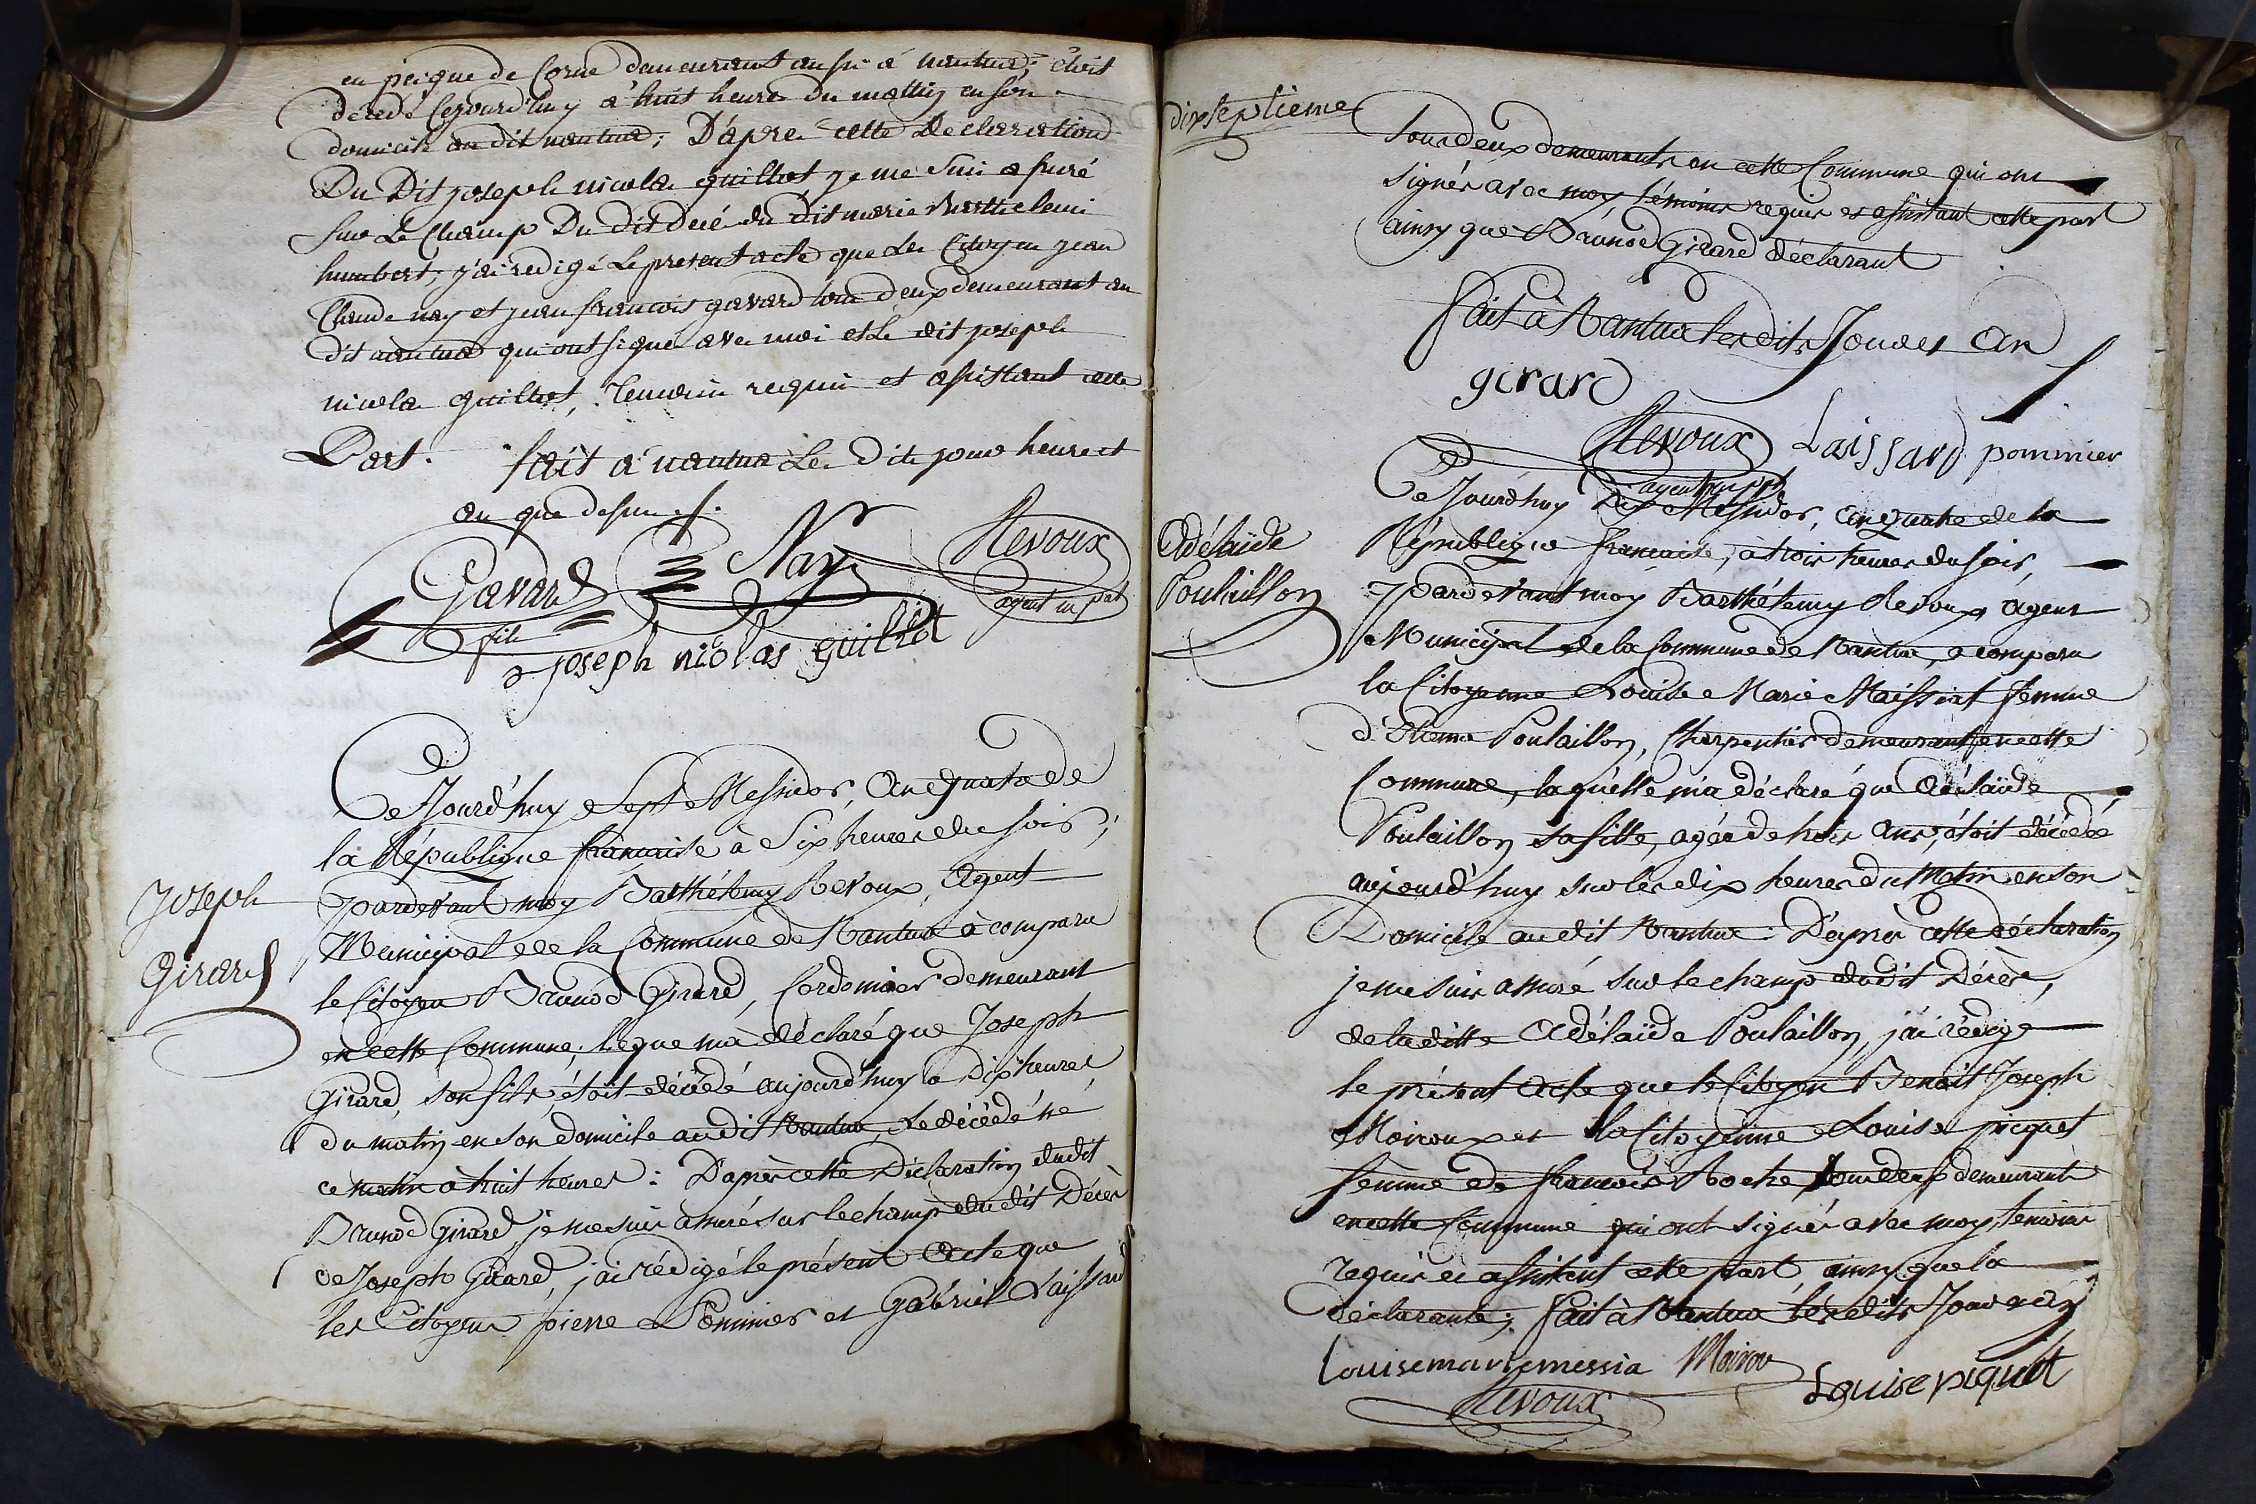 en peigne de Corne demeurant aussi à nantua; étoit
décédé Cejourd'huy à huit heures du mattin en son
domicile au dit nantua; D'apres cette Declaration
Du Dit joseph nicolas guillot je me suis assuré
sur Le Champ Du dit Décé du dit marie Barthelemi
humbert; j'ai redigé Le present acte que Les Citoyens jean
Claude nay et jean francois gavard tous deux demeurant au
dit nantua qui ont signé avec moi et Le dit joseph
nicolas guillot, temoins requis et assistant cette
Part. fait à nantua Les Dits jour heure et
an que dessus ./.
Gavard fils
Nay
Revoux
agent mpal
joseph nicolas guillot
Joseph
Girard
Ce Jourd'huy Sept Messidor, An quatre de
la République française à Six heures du soir,
pardevant moy Barthélemy Revoux, Agent
Municipal de la Commune de Nantua à comparu
le Citoyen Brunod Girard, Cordonnier demeurant
en cette Commune, leque m'a déclaré que Joseph
Girard, son fils, étoit décédé aujourd'huy à Dix heures
du matin en son domicile audit Nantua, Le décédé né
ce matin à huit heures : D'après cette Déclaration dudit
Brunod Girard, je me suis assuré sur le champ du dit Décès
de Joseph Girard, j'ai rédigé le présent Acte que
les Citoyens pierre Pommier et Gabriel Laissard
dixseptieme
tous deux demeurants en cette Commune qui ont
signés avec moy témoins requis et assistant cette part
ainsy que Brunod Girard déclarant
fait à Nantua les dits Jour et an
girard
Revoux Laissard pommier
agent mpal
Adélaïde
Poulaillon
Ce Jourd'huy Dix Messidor, an quatre de la
République française, à trois heures du soir,
pardevant moy Barthélemy Revoux, agent
Municipal de la Commune de Nantua, a comparu
la Citoyenne Louise Marie Maissiat femme
d'Etienne Poulaillon, Charpentier demeurant en cette
Commune, laquelle m'a déclaré que Adélaïde
Poulaillon sa fille, agée de trois ans, étoit décédée
aujourd'huy sur les dix heures du Matin en son
Domicile au dit Nantua : D'après cette déclaration
je me suis assuré sur le champ du dit Décès,
de la ditte Adélaïde Poulaillon, j'ai rédigé
le présent Acte que le Citoyen Benoit Joseph
Moiroux et la Citoyenne Louise piquet
femme de françois Roche tous deux demeurant
en cette Commune qui ont signés avec moy, temoins
requis et assistant cette part, ainsy que la
déclarante; fait à Nantua les dits Jour et an
Louise marie messia Moirou
Louise piquet
Revoux